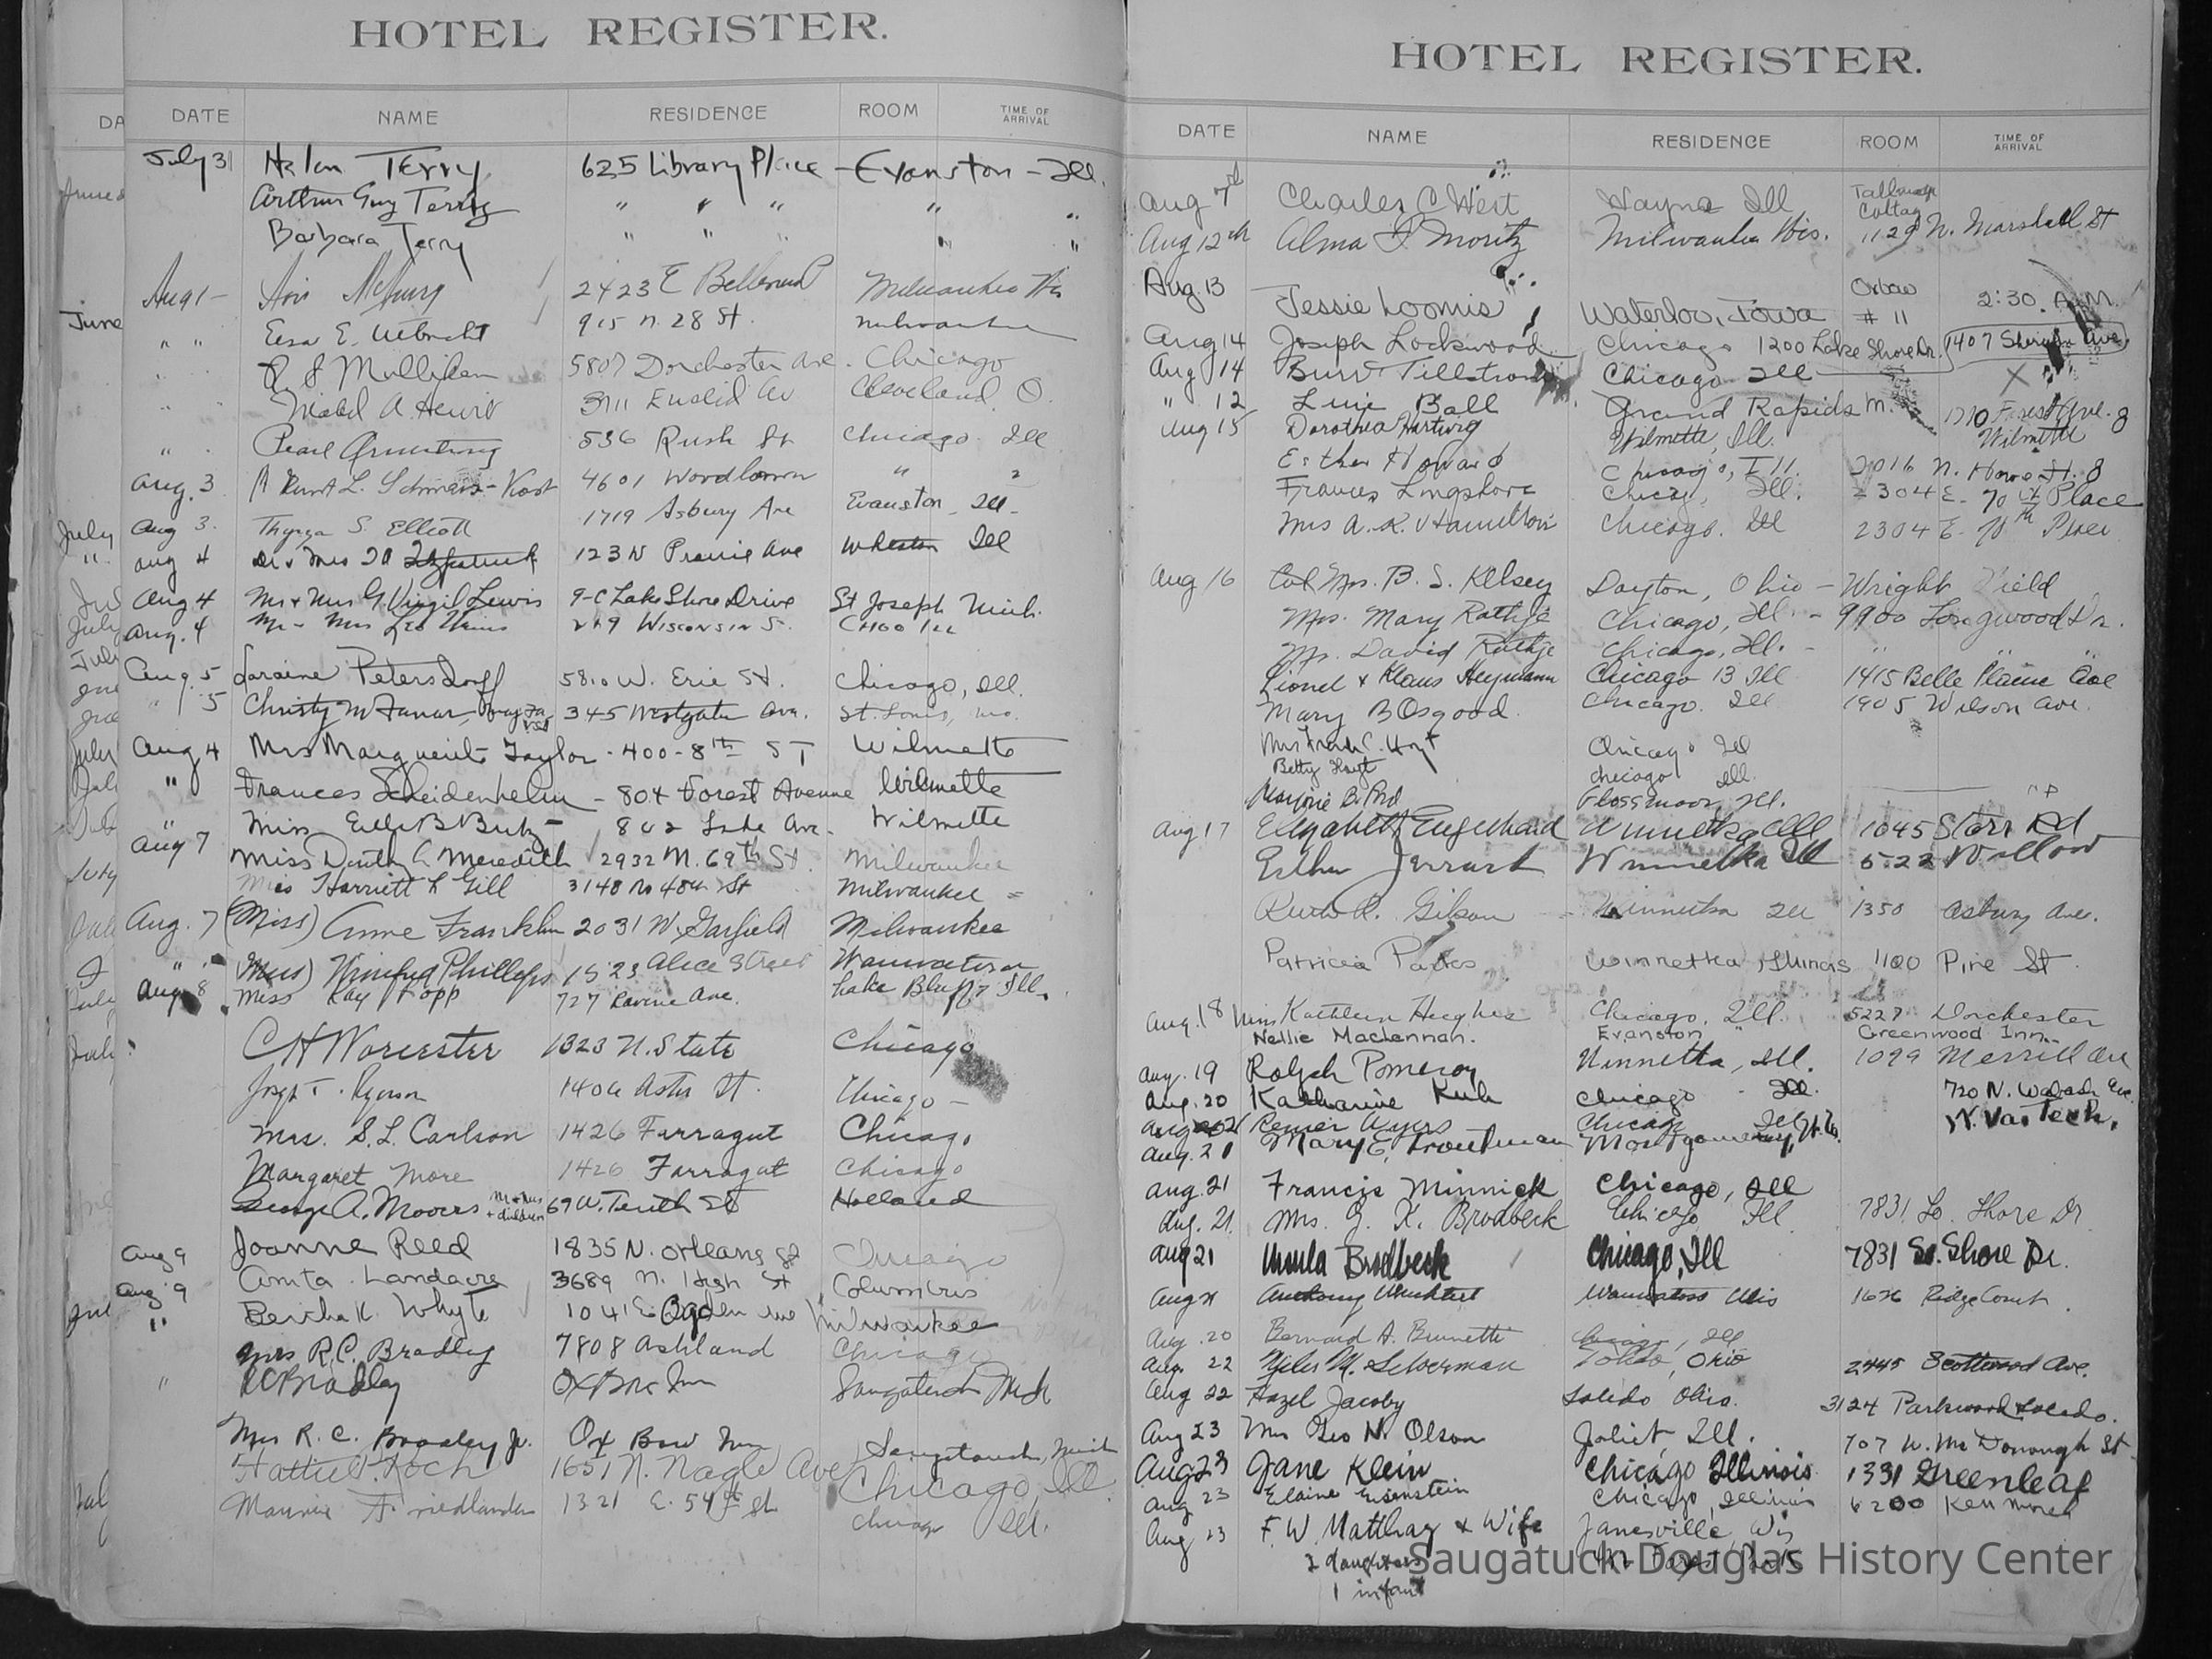 HOTEL REGISTER.
DATE NAME RESIDENCE ROOM TIME OF ARRIVAL
July 31 Helen Terry 625 Library Place - Evanston - Ill.
Arthur Guy Terry " " " " "
Barbara Terry " " " " "
Aug 1 - 2423 E Milwaukee Wis
" " E. 915 N. 28 St. Milwaukee
Mulliken 5807 Dorchester Ave. Chicago
Mabel A. Hewit 3111 Euclid Av Cleveland O.
" Pearl Armstrong 536 Rush St Chicago Ill
Aug. 3 Kurt L. 4601 Woodlawn "
Aug 3. Thyrza S. Elliott 1719 Asbury Ave Evanston Ill.
Aug 4 Dr & Mrs 123 N Prairie Ave Wheaton Ill
Aug 4 Mr & Mrs G Virgil Lewis 9-C Lake Shore Drive St Joseph Mich.
Aug. 4 Mr - Mrs Leo Wisconsin St.
Aug. 5 Loraine Petersdorff 5810 W. Erie St. Chicago, Ill.
" 5 Christy 345 Westgate Ave. St. Louis, Mo.
Aug 4 Mrs Marguerite Taylor - 400 - 8th ST Wilmette
" Frances Scheidenhelm - 804 Forest Avenue Wilmette
" Miss 802 Lake Ave. Wilmette
Aug 7 Miss Meredith 2932 N. 69th St. Milwaukee
Miss Harriett L Gill 3148 N 48th St Milwaukee
Aug. 7 (Miss) Anne Franklin 2031 W. Garfield Milwaukee
" " (Miss) Winifred Phillips 1523 Alice Street Wauwatosa
Aug 8 Miss Kay Popp 727 Ravine Ave. Lake Bluff, Ill.
CH Worcester 1323 N. State Chicago
Josph T. Ryerson 1406 Astor St. Chicago -
Mrs. S. L. Carlson 1426 Farragut Chicago
Margaret More 1426 Farragut Chicago
George A. Moors Mr & Mrs + children 69 W. Tenth St Holland
Aug 9 Joanne Reed 1835 N. Orleans St Chicago
Aug 9 Anita Landacre 3689 N. High St Columbus
" Bertha K. Whyte 1041 E. Ogden Ave Milwaukee
Mrs R. C. Bradley 7808 Ashland Chicago
" RC Bradley Ox Bow Inn Saugatuck Mich
Mrs R. C. Bradley Jr. Ox Bow Inn Saugatuck, Mich
Hattie P. Koch 1651 N. Nagle Ave Chicago, Ill.
Friedlander 1321 E. 54th St Chicago Ill.
HOTEL REGISTER.
DATE NAME RESIDENCE ROOM TIME OF ARRIVAL
Aug 7th Charles C West Wayne Ill Tallmadge Cottage
Aug 12th Alma F. Moritz Milwaukee Wis. 1129 N. Marshall St
Aug. 13 Jessie Loomis Waterloo, Iowa Oxbow # 11 2:30 A.M.
Aug 14 Joseph Lockwood Chicago 1200 Lake Shore Dr.
Aug 14 Burr Tillstrom Chicago Ill 1407 Sherwin Ave.
" 12 Ball Grand Rapids M.
Aug 15 Dorothea Hartwig Wilmette, Ill. Forest Ave. Wilmette
Esther Howard Chicago, Ill. 2016 N. Howe St.
Frances Longshore Chicago, Ill. 2304 E. 70th Place
Mrs A. R. Hamilton Chicago. Ill 2304 E. 70th Place
Aug 16 Col Mrs. B. S. Kelsey Dayton, Ohio - Wright Field
Mrs. Mary Rathje Chicago, Ill. - 9900 Longwood Dr.
Mr. David Rathje Chicago, Ill. - " " "
Lionel & Klaus Heymann Chicago 13 Ill 1415 Belle Plaine Ave
Mary B Osgood Chicago. Ill 1905 Wilson Ave.
Mrs Frank C. Hoyt Chicago Ill
Betty Hoyt Chicago Ill.
Marjorie B. Flossmoor, Ill.
Aug 17 Elizabeth Engelhard Winnetka Ill 1045 Starr Rd
Esther Winnetka Ill 522 Willow
Ruth R. Gibson Winnetka Ill 1350 Asbury Ave.
Patricia Parks Winnetka, Illinois 1100 Pine St.
Aug. 18 Miss Kathleen Hughes Chicago, Ill. 5227 Dorchester
Nellie MacLennan. Evanston " Greenwood Inn.
Aug. 19 Ralph Pomeroy Winnetka, Ill. 1099 Merrill Ave
Aug. 20 Katharine Kuh Chicago - Ill. 720 N. Wabash Ave.
Ayers Chicago
Aug. 21 Mary E. Troutman Montgomery, W. Va. W. Va. Tech.
Aug. 21 Francis Minnick Chicago, Ill
Aug. 21. Mrs. J. K. Brodbeck Chicago Ill 7831 So. Shore Dr
Aug 21 Ursula Brodbeck Chicago, Ill 7831 So. Shore Dr.
Aug Wauwatosa Wis Ridge Court.
Aug. 20 Bernard A. Brunetti Chicago, Ill
Aug. 22 M. Silverman Toledo, Ohio 2445 Scottwood Ave.
Aug 22 Hazel Jacoby Toledo Ohio. 3124 Parkwood Toledo.
Aug 23 Mrs Geo N. Olson Joliet, Ill. 707 W. McDonough St
Aug 23 Jane Klein Chicago Illinois 1331 Greenleaf
Aug 23 Elaine Eisenstein Chicago, Illinois 6200 Kenmore
Aug 23 F. W. Matthay & Wife Janesville Wis
2 daughters Forest Park
1 infant
Saugatuck-Douglas History Center